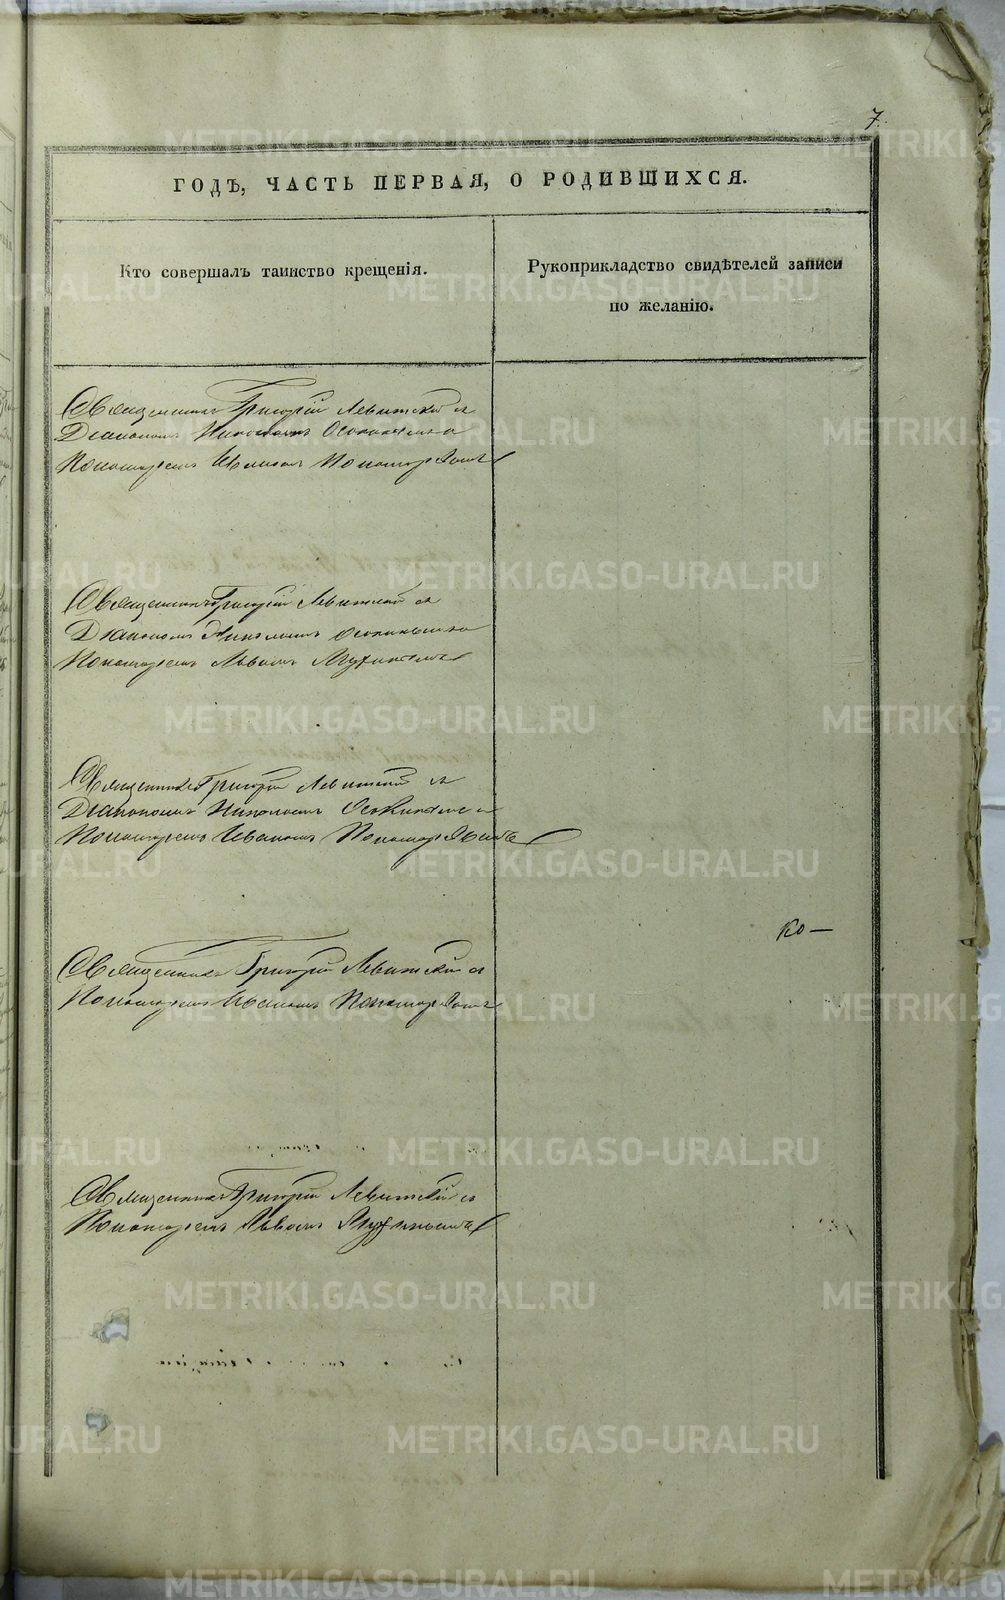 7.
ГОДЪ, ЧАСТЬ ПЕРВАЯ, О РОДИВШИХСЯ.
Кто совершалъ таинство крещенія.
Рукоприкладство свидѣтелей записи
по желанію.
Священникъ Григорій Левитскій съ
Діакономъ Николаемъ
Пономаремъ Иваномъ
Священникъ Григорій Левитскій съ
Діакономъ Николаемъ
Пономаремъ Львомъ
Священникъ Григорій Левитскій съ
Діакономъ Николаемъ
Пономаремъ Иваномъ
Ко—
Священникъ Григорій Левитскій съ
Пономаремъ Иваномъ
Священникъ Григорій Левитскій съ
Пономаремъ Львомъ
METRIKI.GASO-URAL.RU